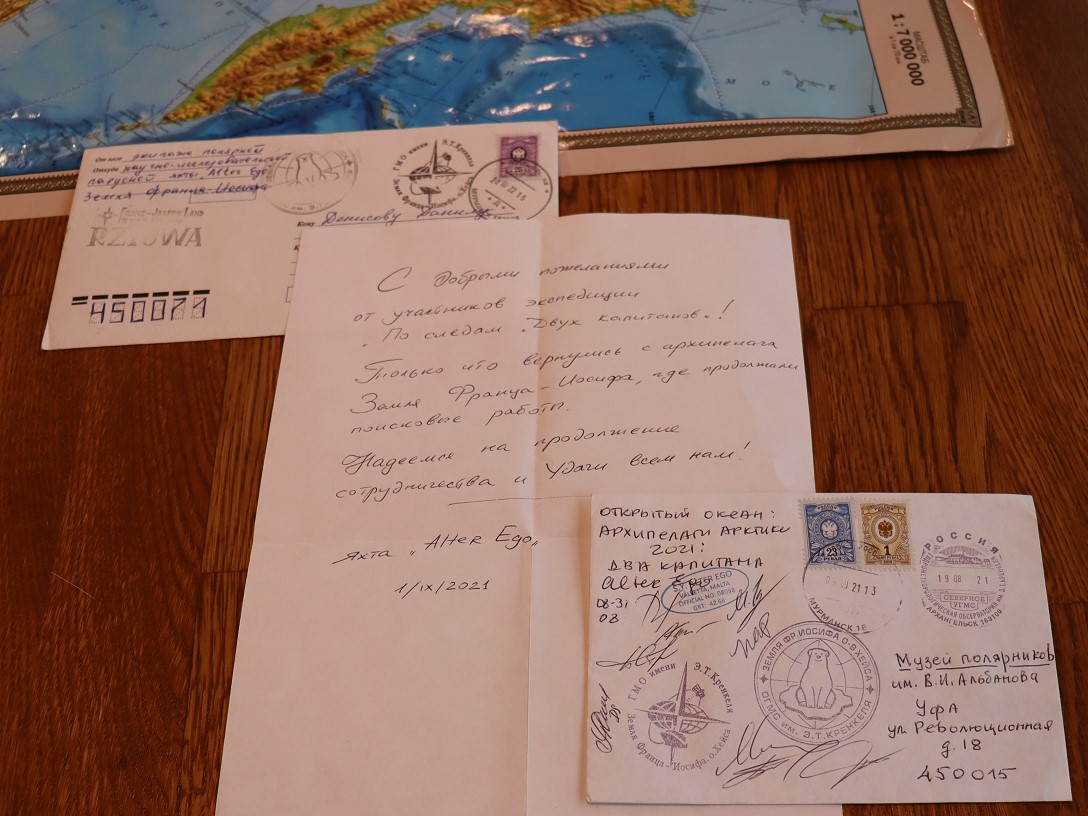 МАСШТАБ
1 : 7 000 000
От кого экипажа полярной
Откуда научно-исследовательской
парусной яхты "Alter Ego"
Земля Франца-Иосифа
FRANZ-JOSEPH LAND
RZ1OWA
450071
ГМО имени Э.Т.Кренкеля
Земля Франца-Иосифа, о.Хейса
Кому Денисову Данилу
С добрыми пожеланиями
от участников экспедиции
"По следам "Двух капитанов"!
Только что вернулись с архипелага
Земля Франца-Иосифа, где продолжали
поисковые работы.
Надеемся на продолжение
сотрудничества и Удачи всем нам!
яхта "Alter Ego"
1/IX/2021
ОТКРЫТЫЙ ОКЕАН:
АРХИПЕЛАГИ АРКТИКИ
2021:
ДВА КАПИТАНА
Alter Ego
08-31
08
S/Y ALTER EGO
VALLETTA, MALTA
OFFICIAL NO: 08098
GRT: 42.68
23
1
МУРМАНСК 18
РОССИЯ
19 08 21
СЕВЕРНОЕ
УГМС
АРХАНГЕЛЬСК 163100
ГМО имени Э.Т.Кренкеля
Земля Франца-Иосифа, о.Хейса
ЗЕМЛЯ ФР.ИОСИФА О-В ХЕЙСА
ОГМС ИМ. Э.Т.КРЕНКЕЛЯ
Музей полярников
им. В.И. Альбанова
Уфа
ул. Революционная
д. 18
450015